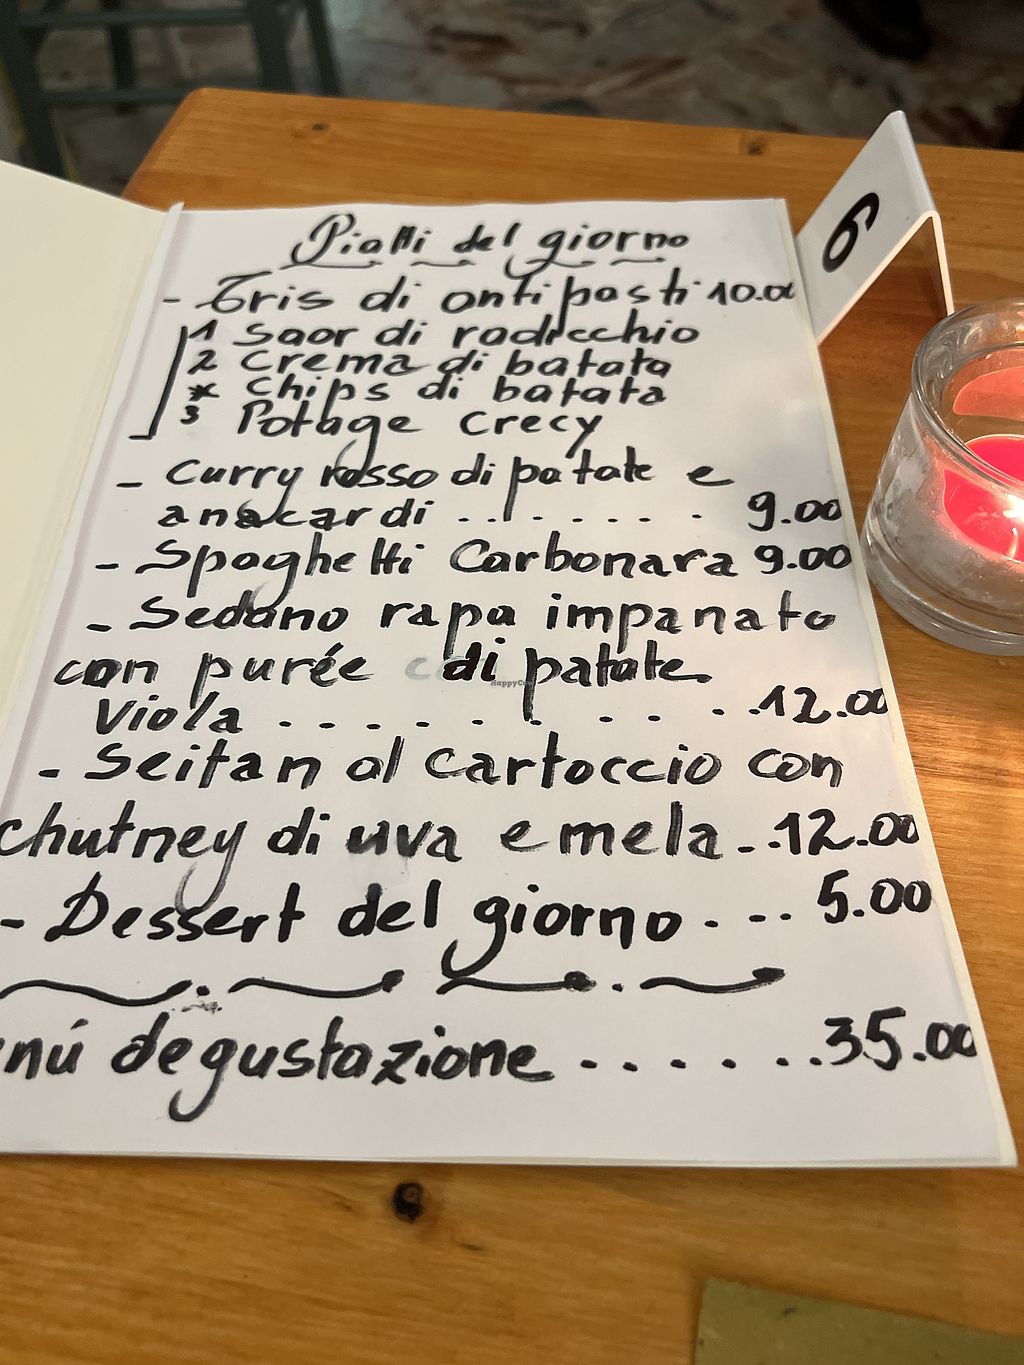 Piatti del giorno
- Tris di antipasti 10.00
1 Saor di radicchio
2 Crema di batata
* Chips di batata
3 Potage Crecy
- Curry rosso di patate e
anacardi ........ 9.00
- Spaghetti Carbonara 9.00
- Sedano rapa impanato
con purée di patate
Viola .......... 12.00
- Seitan al cartoccio con
chutney di uva e mela .. 12.00
- Dessert del giorno .... 5.00
nú degustazione ....... 35.00
6
HappyCow